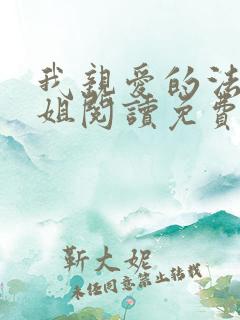 我親愛的法
姐閱讀免費
靳大妮
未经同意禁止转载